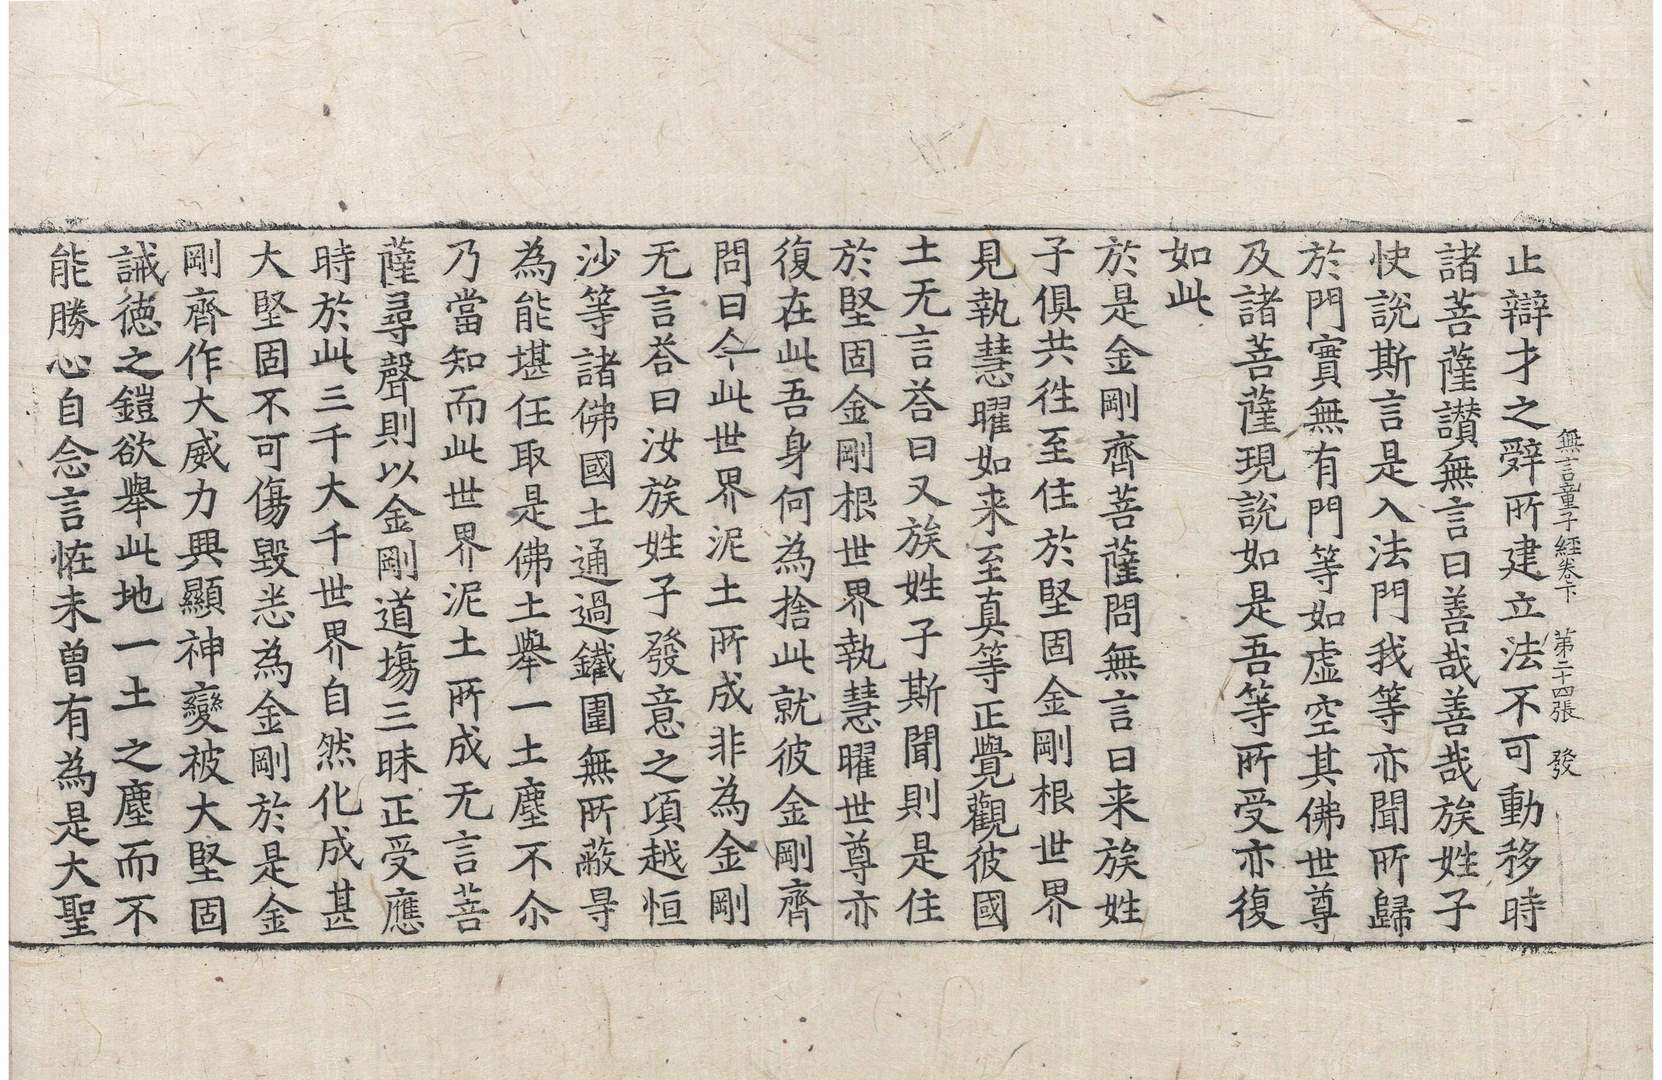 無言童子經卷下 第二十四張 發
止辯才之辭所建立法不可動移時
諸菩薩讃無言曰善哉善哉族姓子
快說斯言是入法門我等亦聞所歸
於門實無有門等如虛空其佛世尊
及諸菩薩現說如是吾等所受亦復
如此
於是金剛齊菩薩問無言曰来族姓
子俱共徃至住於堅固金剛根世界
見執慧曜如来至真等正覺觀彼國
土无言荅曰又族姓子斯聞則是住
於堅固金剛根世界執慧曜世尊亦
復在此吾身何為捨此就彼金剛齊
問曰今此世界泥土所成非為金剛
无言荅曰汝族姓子發意之頃越恒
沙等諸佛國土通過鐵圍無所蔽㝵
為能堪任取是佛土舉一土塵不尒
乃當知而此世界泥土所成无言菩
薩尋聲則以金剛道塲三昧正受應
時於此三千大千世界自然化成甚
大堅固不可傷毀悉為金剛於是金
剛齊作大威力興顯神變被大堅固
誡徳之鎧欲舉此地一土之塵而不
能勝心自念言恠未曾有為是大聖